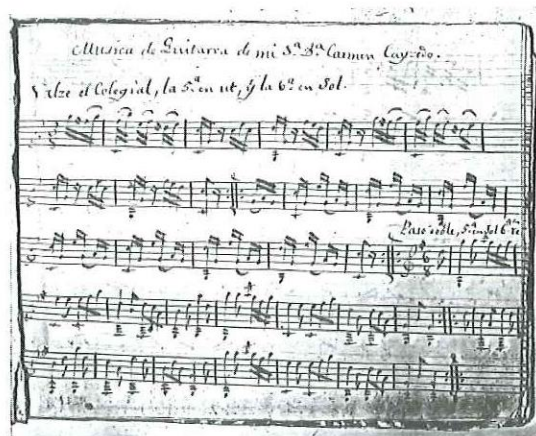 Musica de Guitarra de mi Sª. Dª. Carmen Cayzedo.
Valze el Colegial, la 5ª. en ut, y la 6ª. en Sol.
Paso doble, 5ª. en Sol 6ª. re